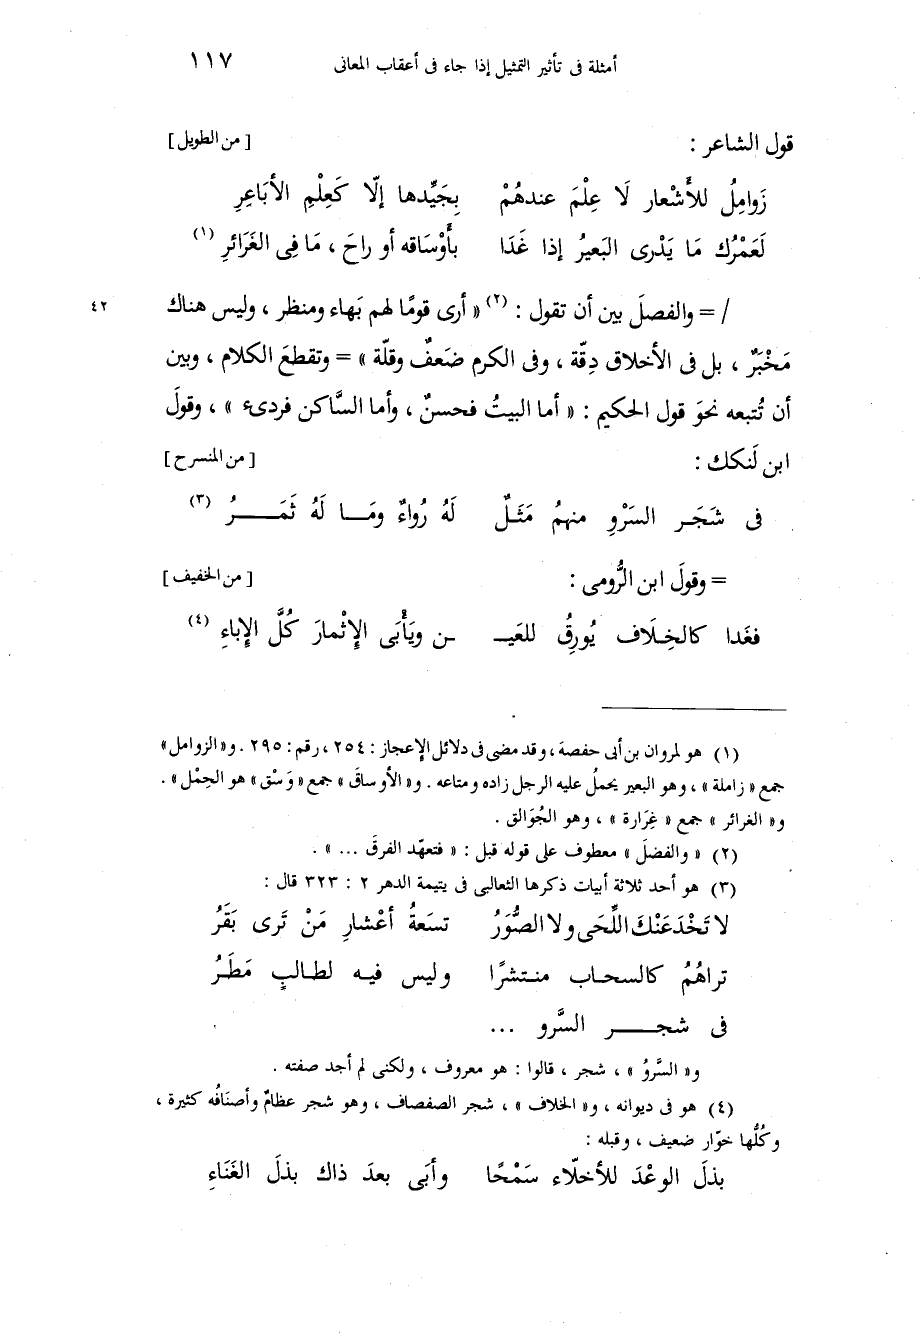 أمثلة فى تأثير التمثيل إذا جاء فى أعقاب المعانى ١١٧
قول الشاعر : [ من الطويل ]
زَوامِلُ للأَشْعار لَا عِلْمَ عندهُمْ بِجَيِّدها إلّا كَعِلْمِ الأبَاعِرِ
لَعَمْرُك مَا يَدْرى البَعيرُ إذا غَدَا بأَوْسَاقه أو راحَ ، مَا فِى الغَرَائرِ (١)
/ = والفصلَ بين أن تقول : (٢) « أرى قومًا لهم بَهاء ومنظر ، وليس هناك ٤٢
مَخْبَرٌ ، بل فى الأخلاق دِقّة ، وفى الكرم ضَعفٌ وقلّة » = وتقطعَ الكلام ، وبين
أن تُتبعه نحوَ قول الحكيم : « أما البيتُ فحسنٌ ، وأما السَّاكن فردىء » ، وقولَ
ابن لَنكك : [ من المنسرح ]
فى شَجَر السَرْوِ منهمُ مَثَلٌ لَهُ رُواءٌ ومَا لَهُ ثَمَرُ (٣)
= وقولَ ابن الرُّومى : [ من الخفيف ]
فغَدا كالخِلَاف يُورِقُ للعَيـ ـن ويَأْبَى الإِثْمارَ كُلَّ الإباءِ (٤)
(١) هو لمروان بن أبى حفصة ، وقد مضى فى دلائل الإعجاز : ٢٥٤ ، رقم : ٢٩٥ . و« الزوامل »
جمع « زاملة » ، وهو البعير يحملُ عليه الرجل زاده ومتاعه . و« الأوساقَ » جمع « وَسْق » هو الحِمْل » .
و« الغرائر » جمع « غِرَارة » ، وهو الجُوَالق .
(٢) « والفضلَ » معطوف على قوله قبل : « فتعهّد الفرقَ ... » .
(٣) هو أحد ثلاثة أبيات ذكرها الثعالبى فى يتيمة الدهر ٢ : ٣٢٣ قال :
لا تَخْدَعَنْكَ اللِّحَى ولا الصُّوَرُ تسَعةُ أعْشارِ مَنْ تَرى بَقَرُ
تراهُمُ كالسحاب منتشرًا وليس فيه لطالبٍ مَطَرُ
فى شجر السَّرو ...
و« السَّروُ » ، شجر ، قالوا : هو معروف ، ولكنى لم أجد صفته .
(٤) هو فى ديوانه ، و« الخلاف » ، شجر الصفصاف ، وهو شجر عظامٌ وأصنَافُه كثيرة ،
وكُلُّها خوّار ضعيف ، وقبله :
بذلَ الوعْدَ للأخلّاء سَمْحًا وأبَى بعدَ ذاك بذلَ الغَنَاءِ